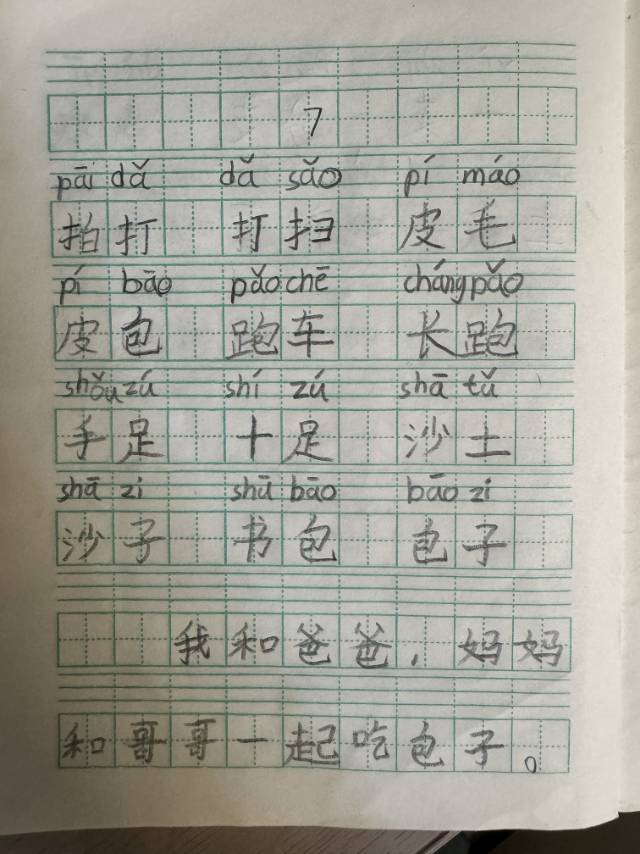 7
pāi dǎ dǎ sǎo pí máo
拍打 打扫 皮毛
pí bāo pǎo chē cháng pǎo
皮包 跑车 长跑
shǒu zú shí zú shā tǔ
手足 十足 沙土
shā zi shū bāo bāo zi
沙子 书包 包子
我和爸爸,妈妈
和哥哥一起吃包子。